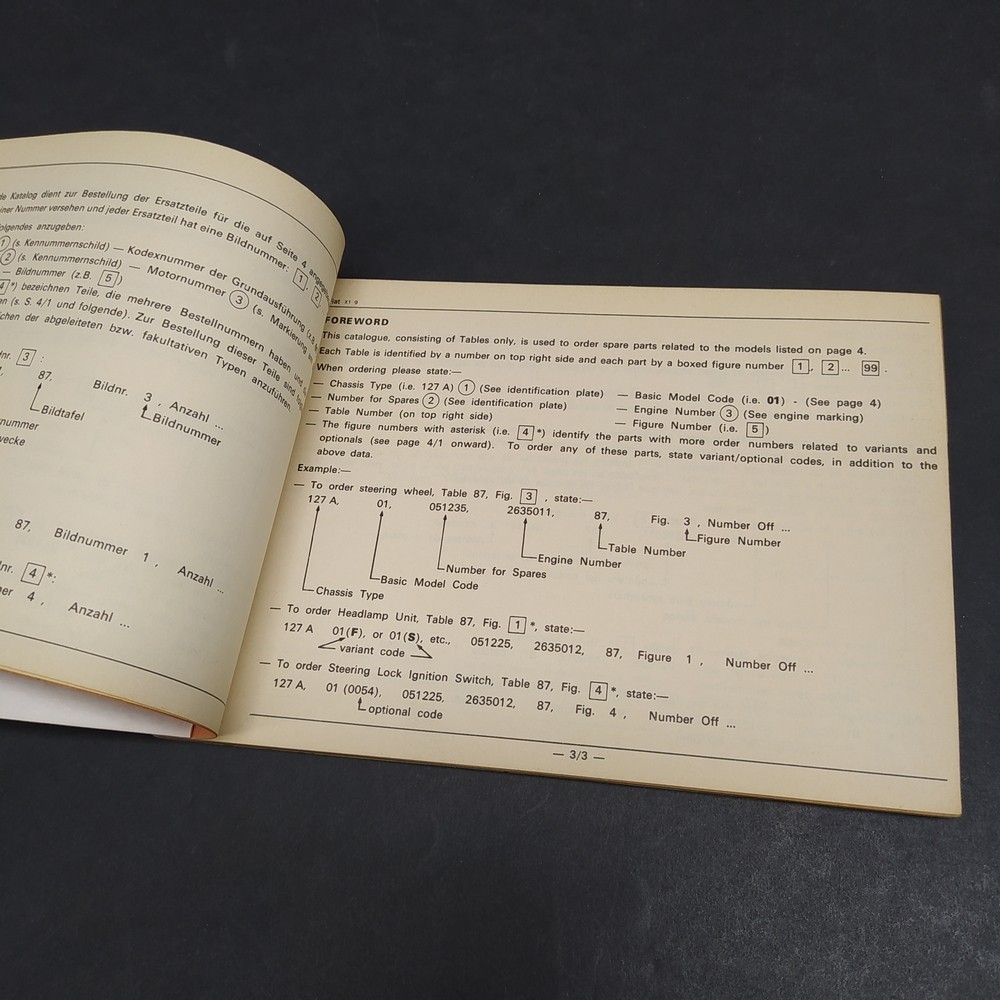 de Katalog dient zur Bestellung der Ersatzteile für die auf Seite 4
einer Nummer versehen und jeder Ersatzteil hat eine Bildnummer: 1, 2
folgendes anzugeben:
1 (s. Kennummernschild) — Kodexnummer der Grundausführung (z.B.
2 (s. Kennummernschild) — Motornummer 3 (s. Markierung
— Bildnummer (z.B. 5)
4 *) bezeichnen Teile, die mehrere Bestellnummern haben und
en (s. S. 4/1 und folgende). Zur Bestellung dieser Teile sind
ichen der abgeleiteten bzw. fakultativen Typen anzuführen.
dnr. 3 :
87, Bildnr. 3 , Anzahl ...
Bildtafel Bildnummer
nummer
wecke
87, Bildnummer 1 , Anzahl ...
dnr. 4 *:
mer 4 , Anzahl ...
iat X1 9
FOREWORD
This catalogue, consisting of Tables only, is used to order spare parts related to the models listed on page 4.
Each Table is identified by a number on top right side and each part by a boxed figure number 1 , 2 ... 99 .
When ordering please state:—
— Chassis Type (i.e. 127 A) 1 (See identification plate) — Basic Model Code (i.e. 01) - (See page 4)
— Number for Spares 2 (See identification plate) — Engine Number 3 (See engine marking)
— Table Number (on top right side) — Figure Number (i.e. 5 )
— The figure numbers with asterisk (i.e. 4 *) identify the parts with more order numbers related to variants and
optionals (see page 4/1 onward). To order any of these parts, state variant/optional codes, in addition to the
above data.
Example:—
— To order steering wheel, Table 87, Fig. 3 , state:—
127 A, 01, 051235, 2635011, 87, Fig. 3 , Number Off ...
Figure Number
Table Number
Engine Number
Number for Spares
Basic Model Code
Chassis Type
— To order Headlamp Unit, Table 87, Fig. 1 *, state:—
127 A 01(F), or 01(S), etc., 051225, 2635012, 87, Figure 1 , Number Off ...
variant code
— To order Steering Lock Ignition Switch, Table 87, Fig. 4 *, state:—
127 A, 01 (0054), 051225, 2635012, 87, Fig. 4 , Number Off ...
optional code
— 3/3 —